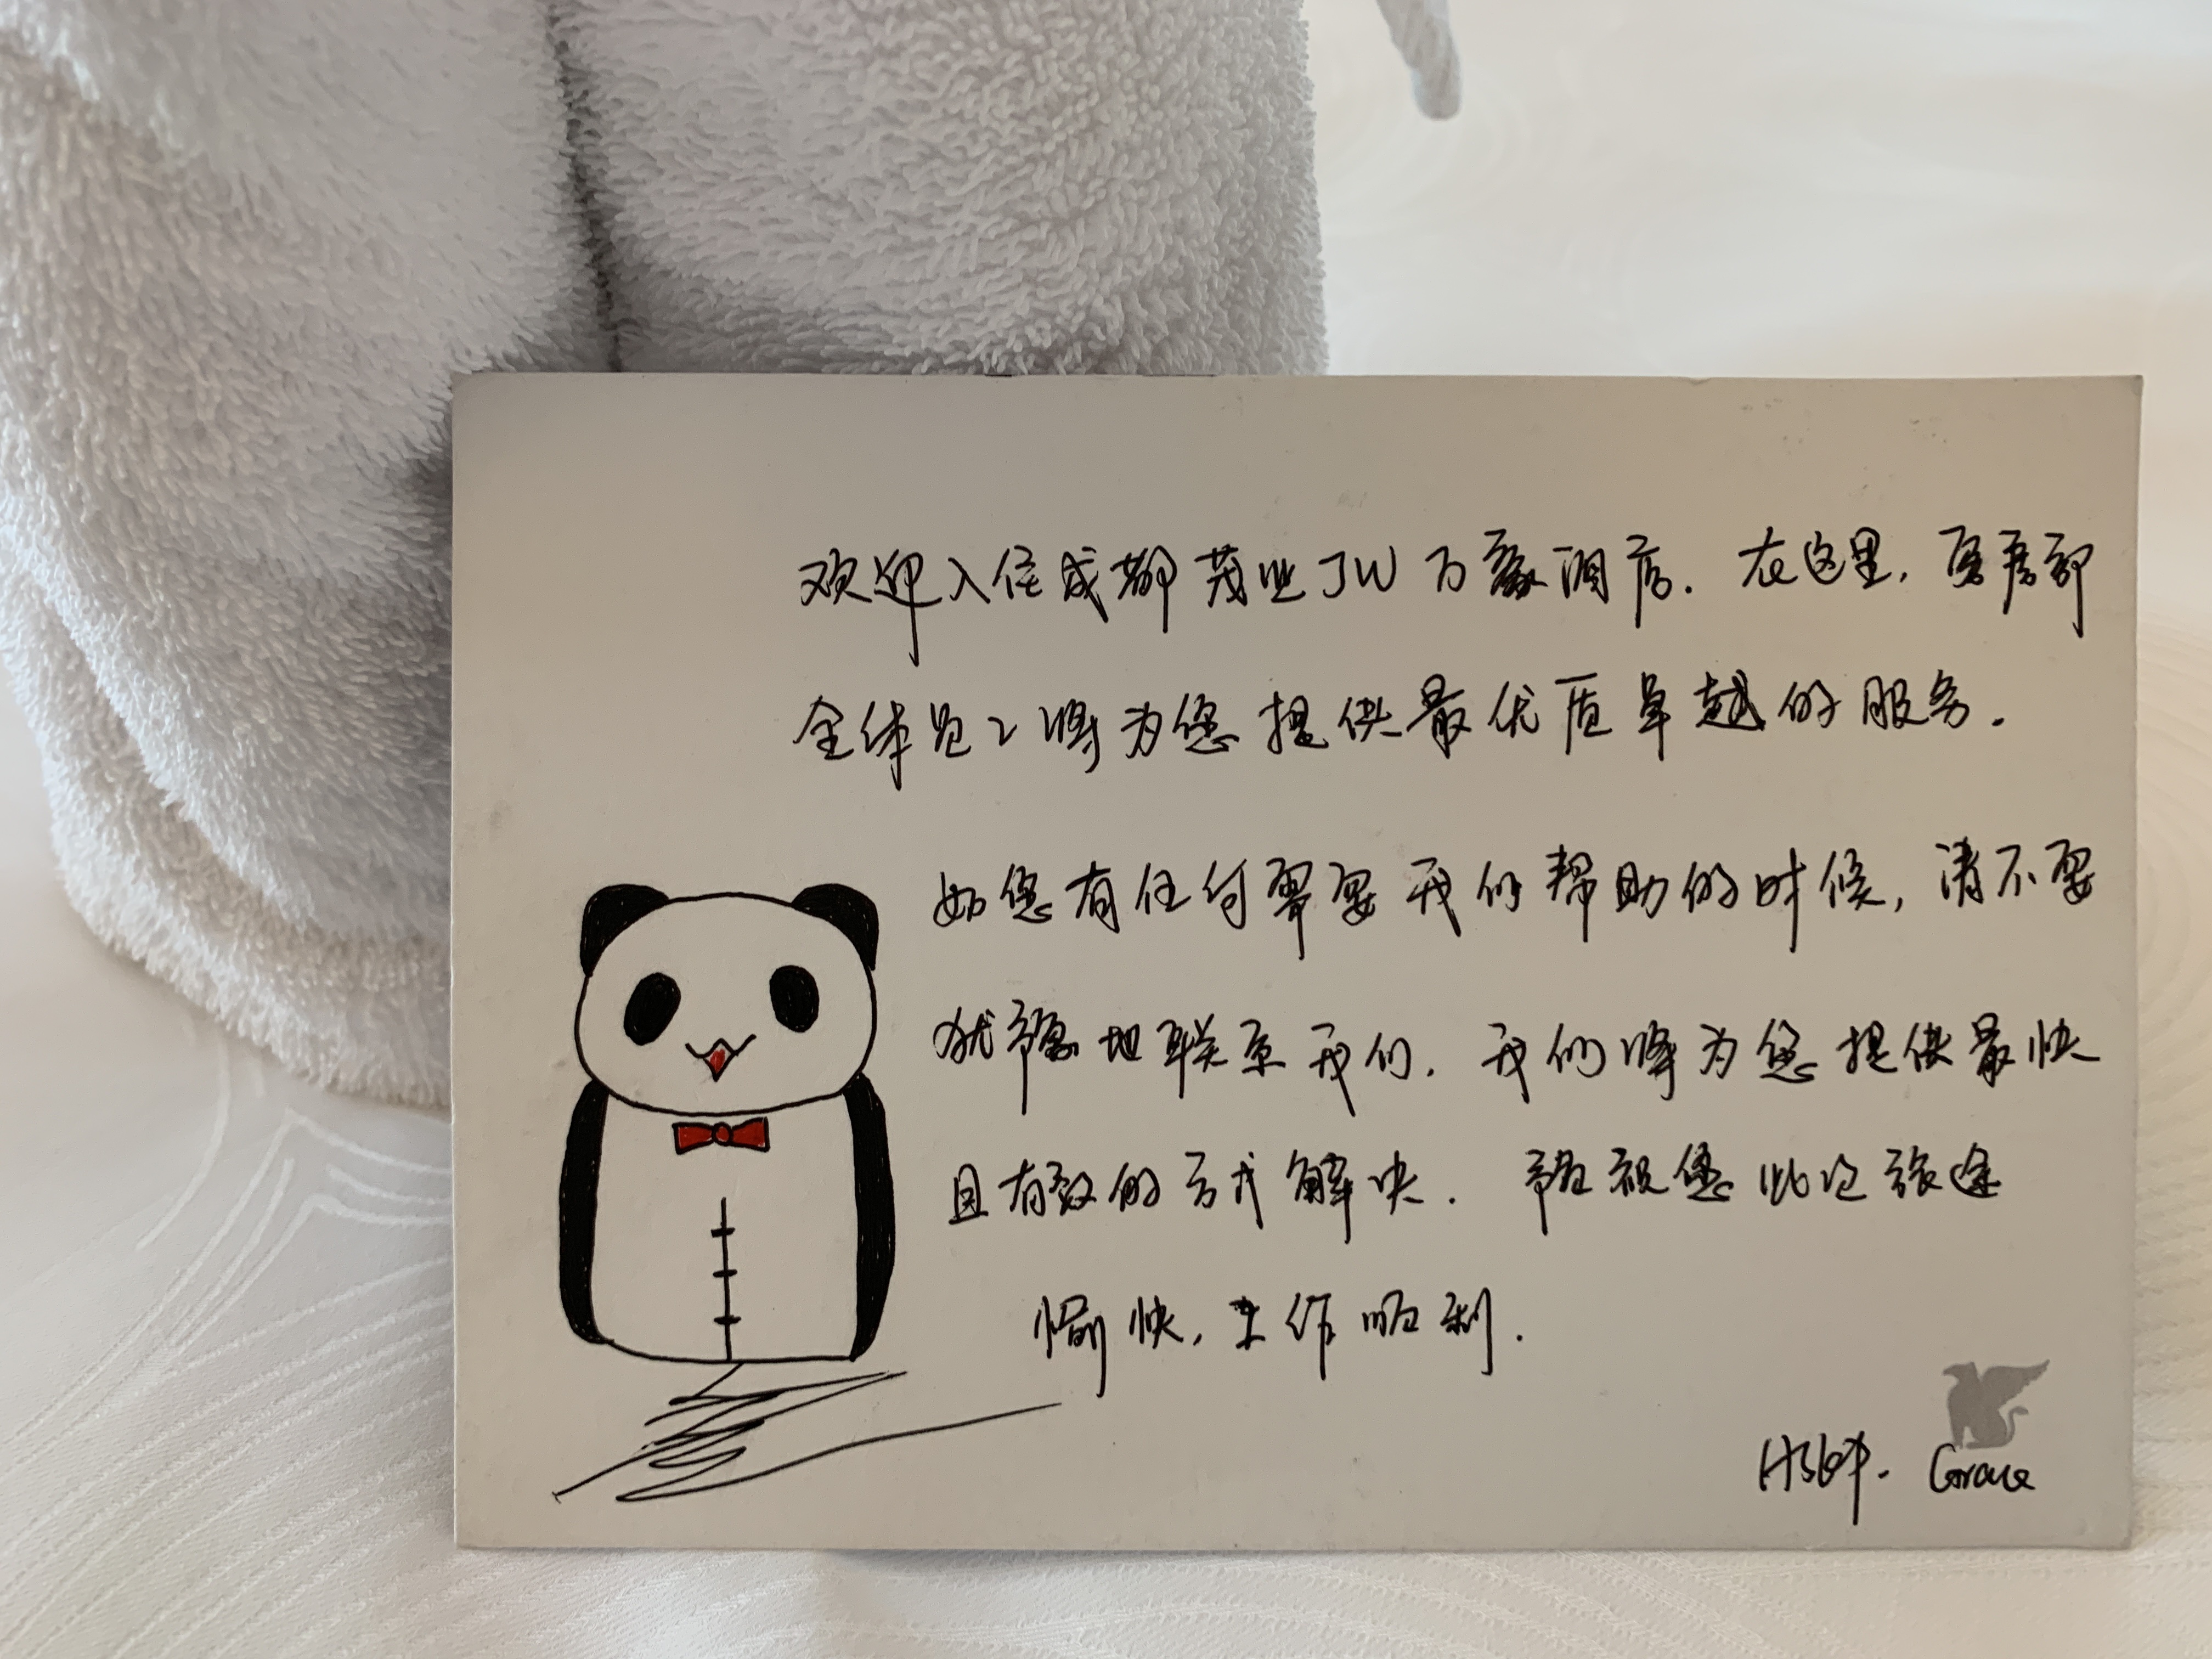 欢迎入住成都茂业JW万豪酒店. 在这里, 客房部
全体员工将为您提供最优质卓越的服务.
如您有任何需要我们帮助的时候, 请不要
犹豫地联系我们. 我们将为您提供最快
且有效的方式解决. 预祝您此次旅途
愉快, 工作顺利.
Grace